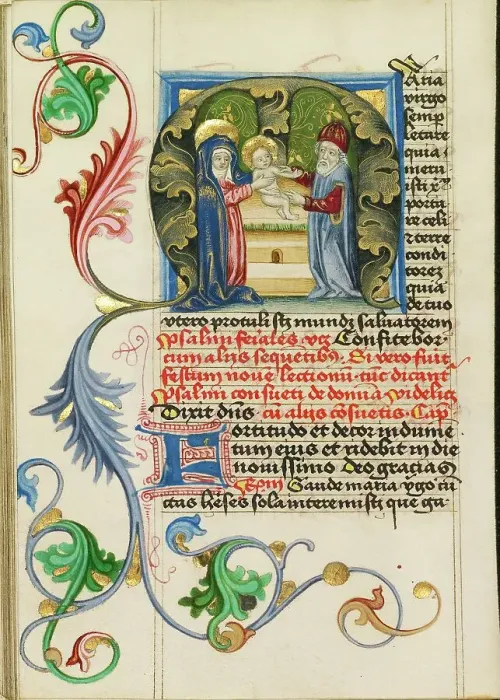 Maria
virgo
semp
letare
quia
meru
isti xp̄
porta
re celi
⁊ terre
condi
torez
quia
de tuo
vtero protulisti mundi saluatorem
psalmi feriales vz Confitebor
cum alijs sequētibꝰ. Si vero fuit
festum noue lectionū tūc dicant
psalmi consueti de domīa videlic
Dixit dn̄s cū alijs cōsuetis. Cap
Fortitudo et decor indume
tum eius et ridebit in die
nouissimo Deo gracias
Gaude maria v̄go cū
ctas h̄eses sola interemisti que ga